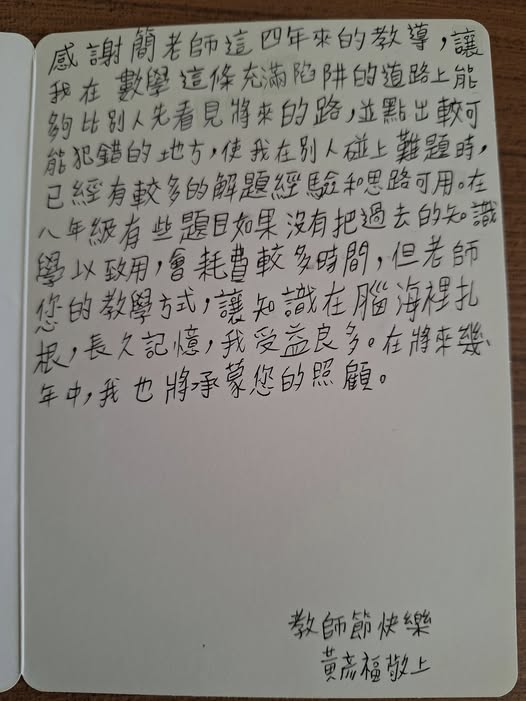 感謝簡老師這四年來的教導，讓
我在數學這條充滿陷阱的道路上能
夠比別人先看見將來的路，並點出較可
能犯錯的地方，使我在別人碰上難題時，
已經有較多的解題經驗和思路可用。在
八年級有些題目如果沒有把過去的知識
學以致用，會耗費較多時間，但老師
您的教學方式，讓知識在腦海裡扎
根，長久記憶，我受益良多。在將來幾
年中，我也將承蒙您的照顧。
教師節快樂
黃彥福敬上